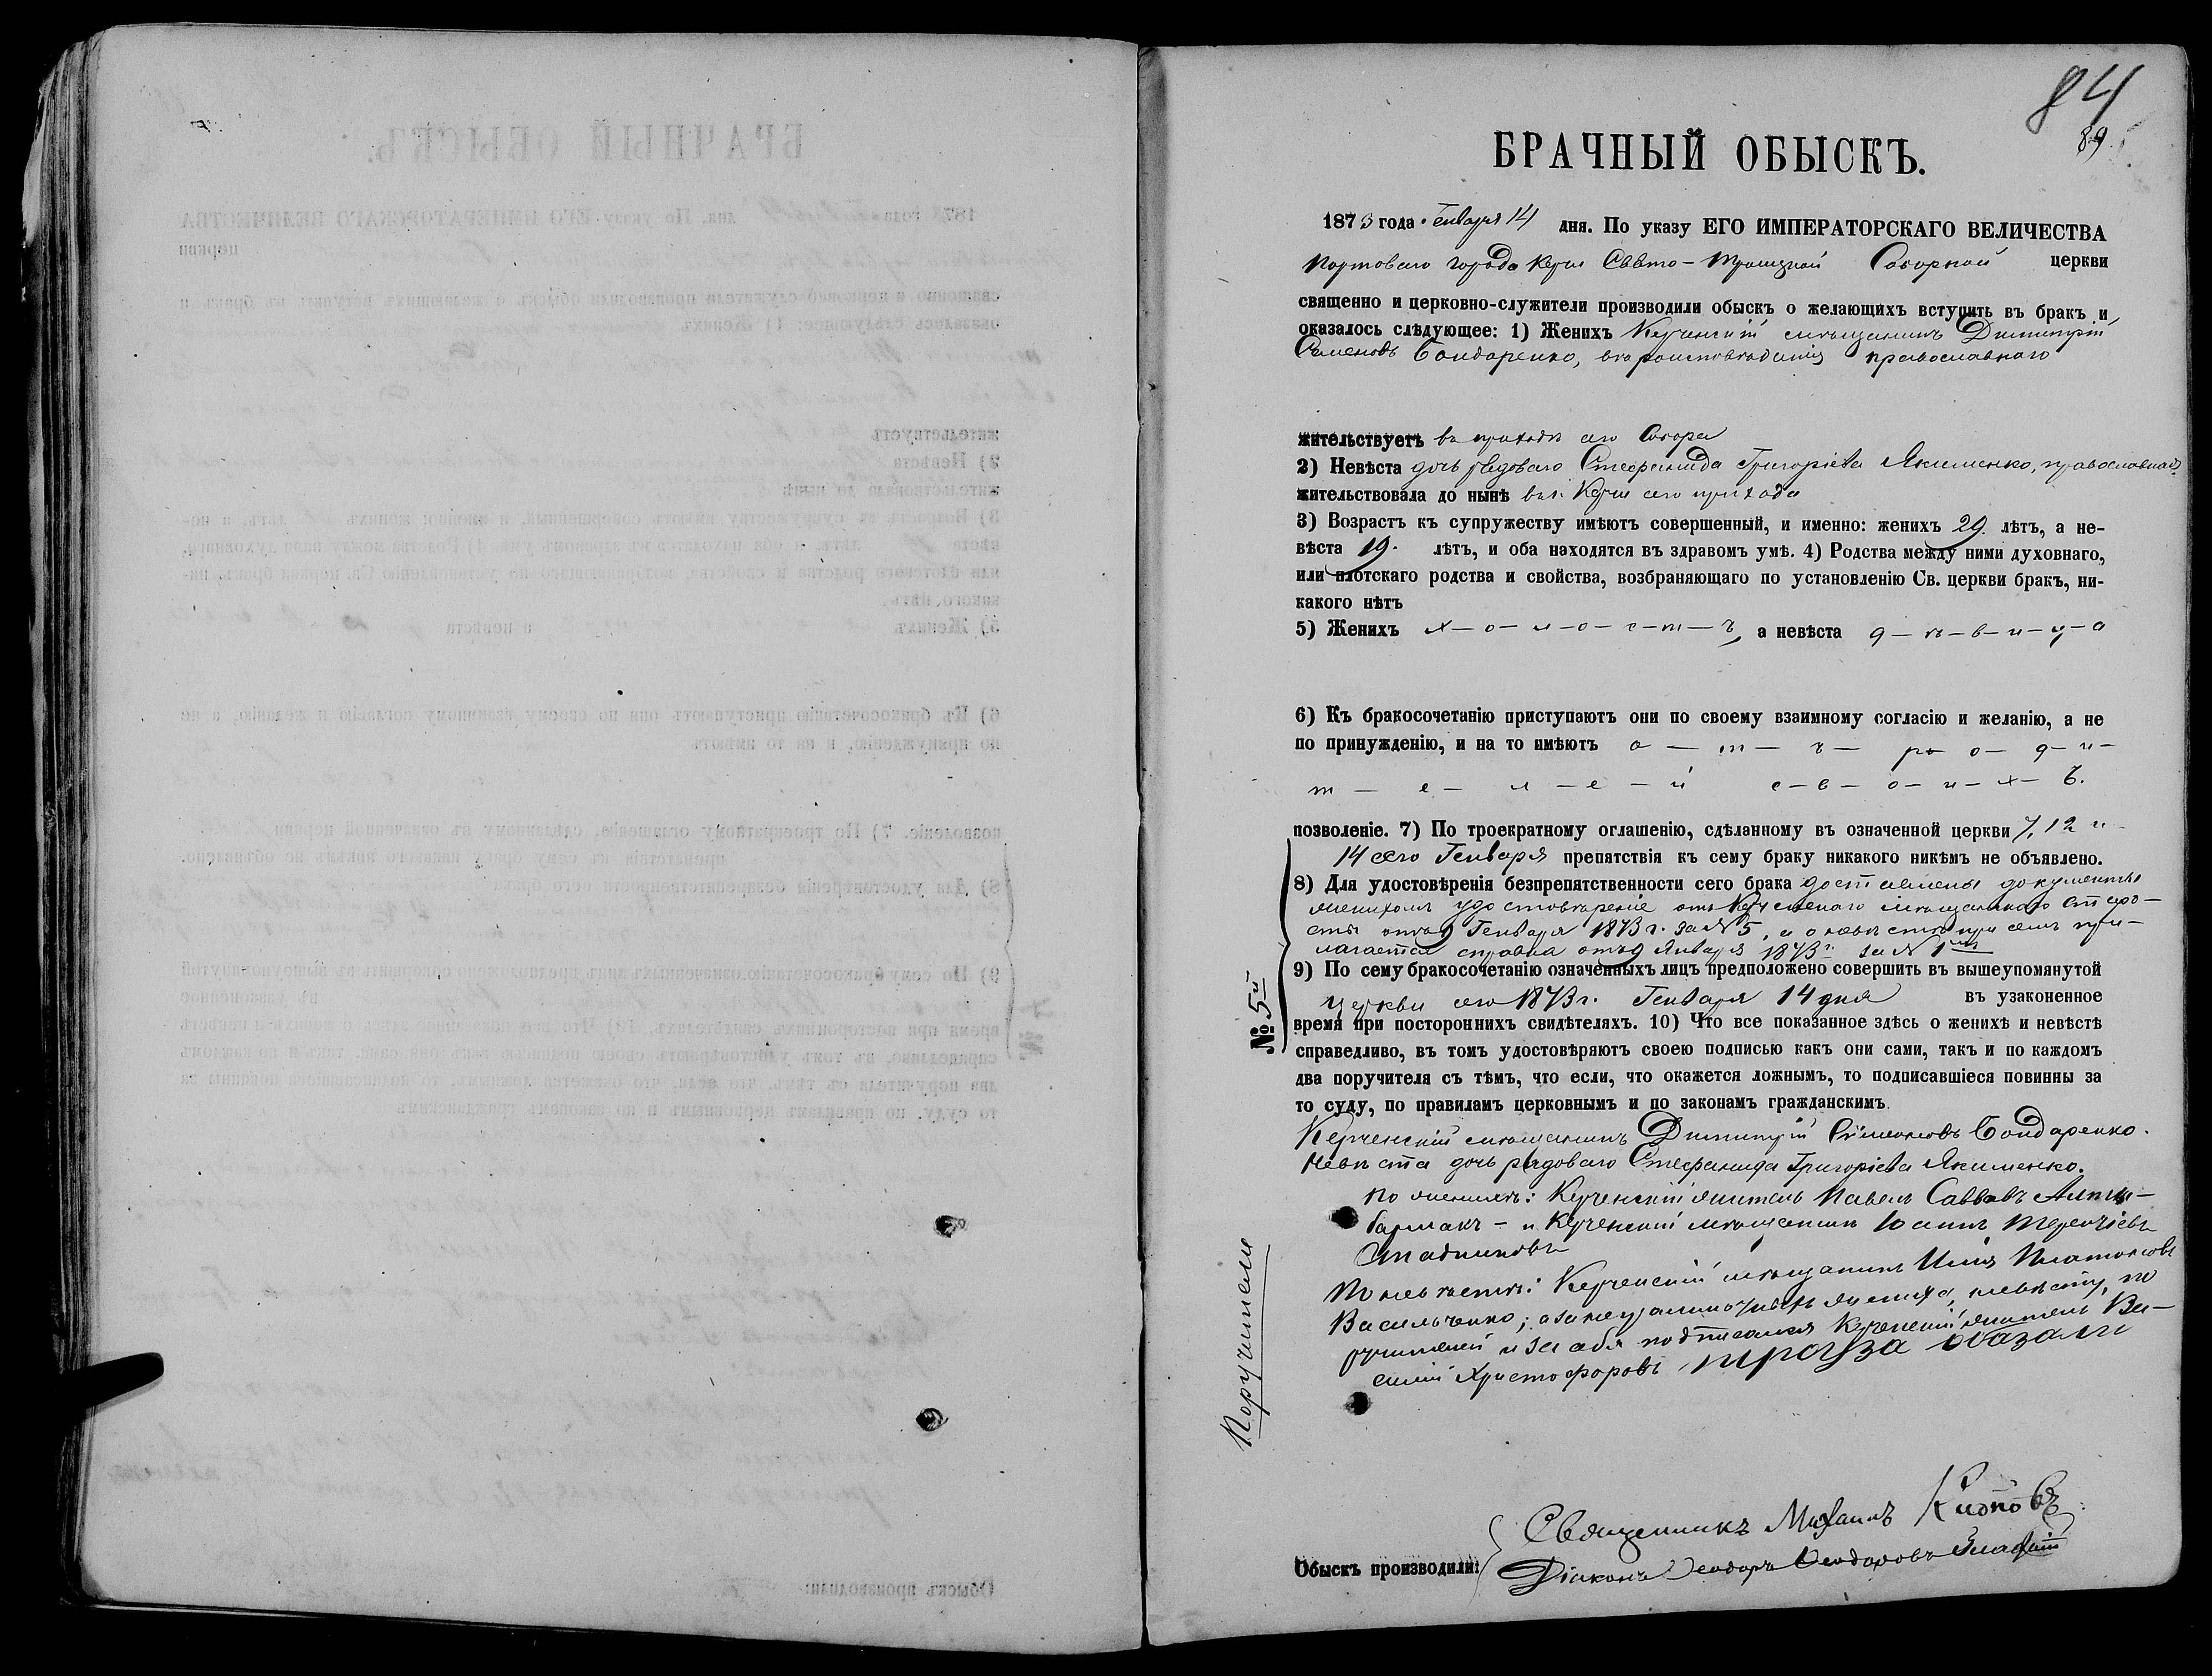 84
89
БРАЧНЫЙ ОБЫСКЪ.
1873 года Генваря 14 дня. По указу ЕГО ИМПЕРАТОРСКАГО ВЕЛИЧЕСТВА
Портоваго города Керчи Свято-Троицкой Соборной церкви
священно и церковно-служители производили обыскъ о желающихъ вступить въ бракъ и
оказалось слѣдующее: 1) Женихъ Керченскій мѣщанинъ Димитрій
Семеновъ Бондаренко, вѣроисповѣданія православнаго
жительствуетъ въ приходѣ сего Собора
2) Невѣста дочь рядоваго Стефанида Григоріева Якименко, православная
жительствовала до нынѣ въ г. Керчи сего прихода
3) Возрастъ къ супружеству имѣютъ совершенный, и именно: женихъ 29 лѣтъ, а не-
вѣста 19. лѣтъ, и оба находятся въ здравомъ умѣ. 4) Родства между ними духовнаго,
или плотскаго родства и свойства, возбраняющаго по установленію Св. церкви бракъ, ни-
какого нѣтъ
5) Женихъ х-о-л-о-с-т-ъ, а невѣста д-ѣ-в-и-ц-а
6) Къ бракосочетанію приступаютъ они по своему взаимному согласію и желанію, а не
по принужденію, и на то имѣютъ о-т-ъ- р-о-д-и-
т-е-л-е-й с-в-о-и-х-ъ.
позволеніе. 7) По троекратному оглашенію, сдѣланному въ означенной церкви 7, 12 и
14 сего Генваря препятствія къ сему браку никакого никѣмъ не объявлено.
8) Для удостовѣренія безпрепятственности сего брака доставлены документы
женихомъ удостовѣреніе отъ Керченскаго мѣщанскаго старо-
сты отъ 9 Генваря 1873 г. за № 5, а о невѣстѣ при семъ при-
лагается справка отъ 9 Января 1873 г. за № 1мъ
9) По сему бракосочетанію означенныхъ лицъ предположено совершить въ вышеупомянутой
церкви сего 1873 г. Генваря 14 дня въ узаконенное
время при постороннихъ свидѣтеляхъ. 10) Что все показанное здѣсь о женихѣ и невѣстѣ
справедливо, въ томъ удостовѣряютъ своею подписью какъ они сами, такъ и по каждомъ
два поручителя съ тѣмъ, что если, что окажется ложнымъ, то подписавшіеся повинны за
то суду, по правиламъ церковнымъ и по законамъ гражданскимъ.
№ 5й
Керченскій мѣщанинъ Димитрій Симеоновъ Бондаренко.
Невѣста дочь рядоваго Стефанида Григоріева Якименко.
Поручители
По женихѣ: Керченскій житель Павелъ Саввовъ
бармакъ - и Керченскій мѣщанинъ Іоаннъ Терентіевъ
По невѣстѣ: Керченскій мѣщанинъ Илія Платоновъ
Васильченко; а за неграмотныхъ жениха, невѣсту, по
ручителей и за себя подписался Керченскій житель Ва-
силій Христофоровъ
Обыскъ производили:
Священникъ Михаилъ
Діаконъ Ѳеодоръ Ѳеодоровъ